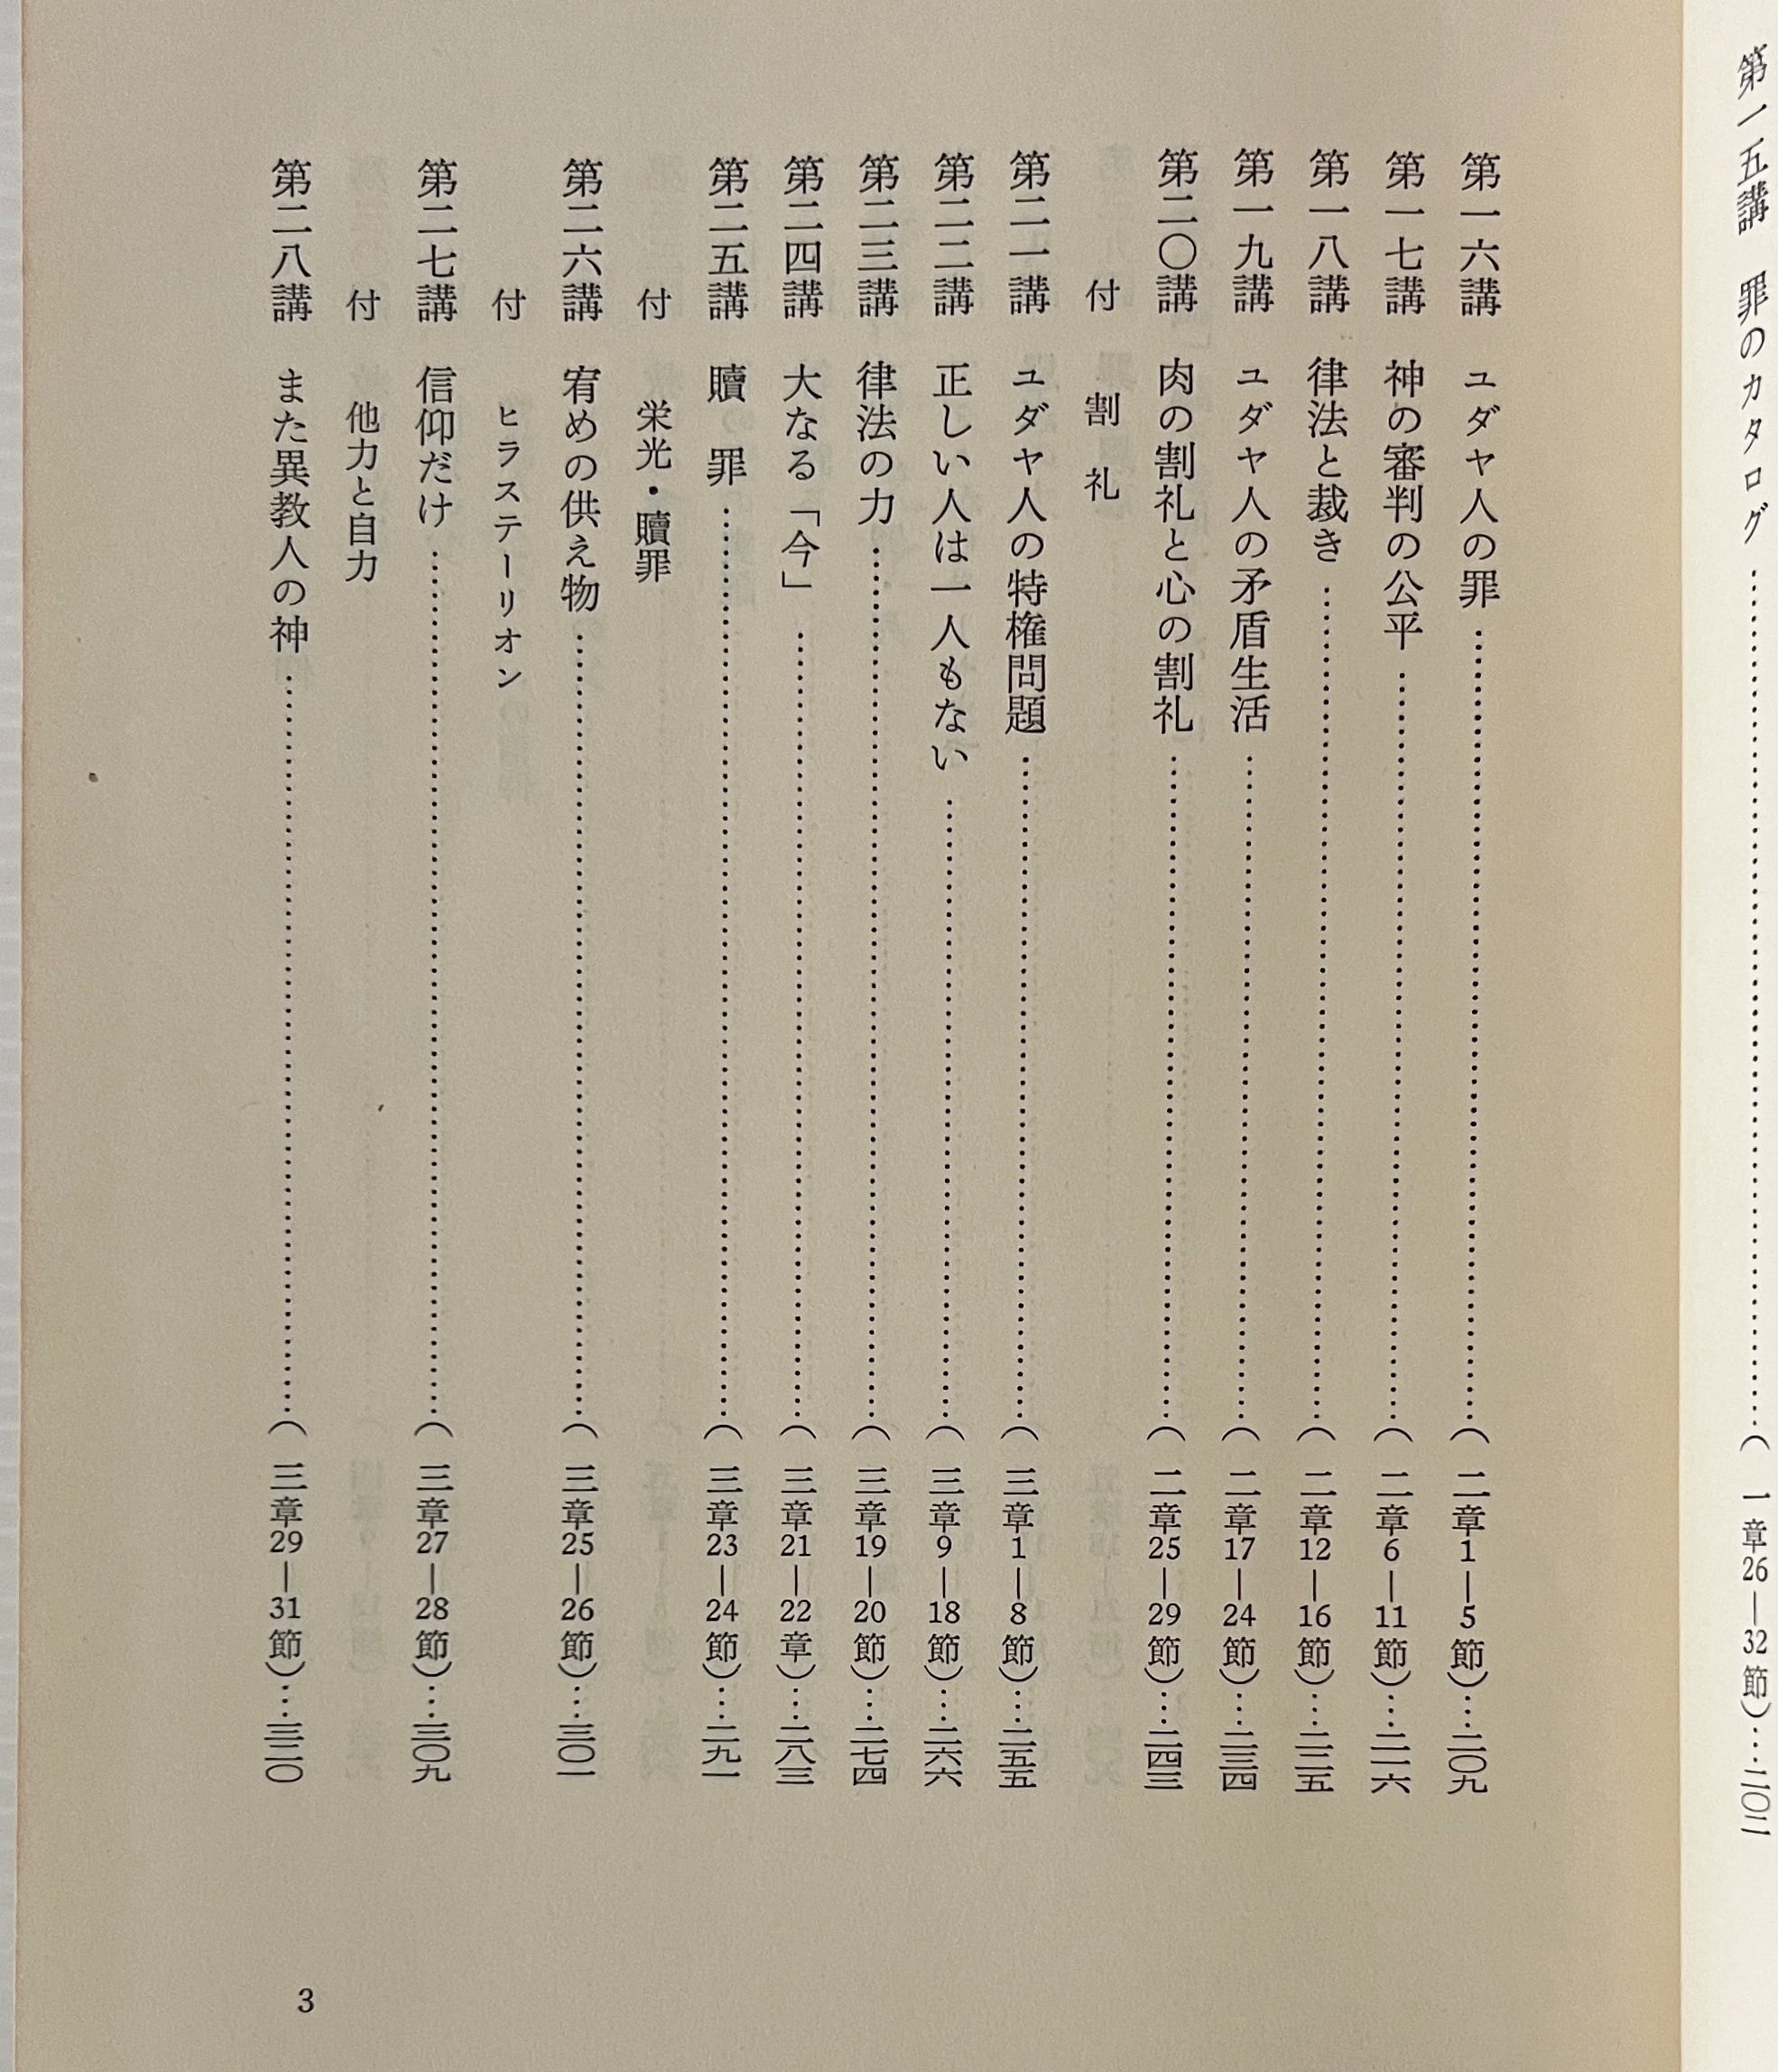 第一五講　罪のカタログ……………（一章26―32節）…二〇二
第一六講　ユダヤ人の罪……………（二章1―5節）…二〇九
第一七講　神の審判の公平……………（二章6―11節）…二一六
第一八講　律法と裁き……………（二章12―16節）…二二五
第一九講　ユダヤ人の矛盾生活……………（二章17―24節）…二三四
第二〇講　肉の割礼と心の割礼……………（二章25―29節）…二四三
付　割　礼
第二一講　ユダヤ人の特権問題……………（三章1―8節）…二五五
第二二講　正しい人は一人もない……………（三章9―18節）…二六六
第二三講　律法の力……………（三章19―20節）…二七四
第二四講　大なる「今」……………（三章21―22章）…二八三
第二五講　贖　罪……………（三章23―24節）…二九一
付　栄光・贖罪
第二六講　宥めの供え物……………（三章25―26節）…三〇一
付　ヒラステーリオン
第二七講　信仰だけ……………（三章27―28節）…三〇九
付　他力と自力
第二八講　また異教人の神……………（三章29―31節）…三二〇
3